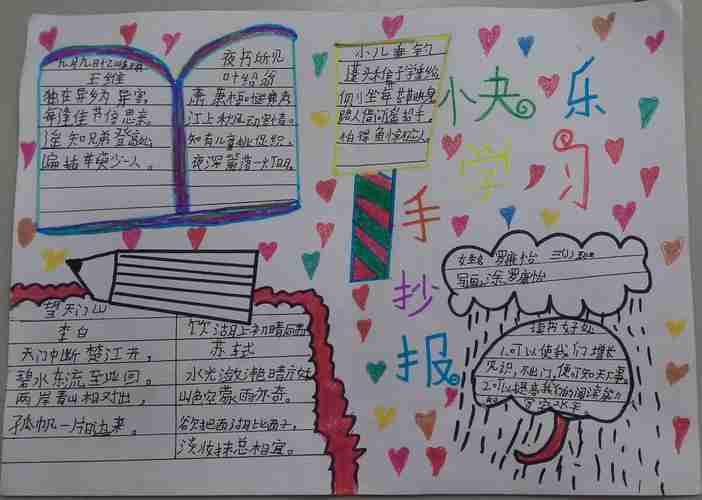 九月九日忆山东兄弟
王维
独在异乡为异客,
每逢佳节倍思亲。
遥知兄弟登高处,
遍插茱萸少一人。
夜书所见
叶绍翁
萧萧梧叶送寒声
江上秋风动客情。
知有儿童挑促织,
夜深篱落一灯明。
小儿垂钓
蓬头稚子学垂纶
侧坐莓苔草映身
路人借问遥招手,
怕得鱼惊不应人。
快乐
学习
手
抄
报
姓名:罗 怡 三(1)班
写画涂 罗 怡
读书好处
1.可以使我们增长
见识,不出门,便可知天下事。
2.可以提高我们的阅读能力
水平
望天门山
李白
天门中断楚江开,
碧水东流至此回。
两岸青山相对出,
孤帆一片日边来。
饮湖上初晴后雨
苏轼
水光潋滟晴方好
山色空蒙雨亦奇。
欲把西湖比西子,
淡妆抹总相宜。